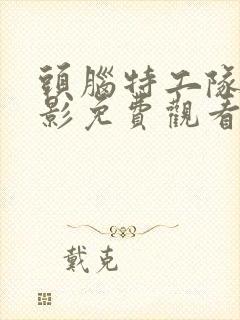 頭腦特工隊
影免費觀看
戴克